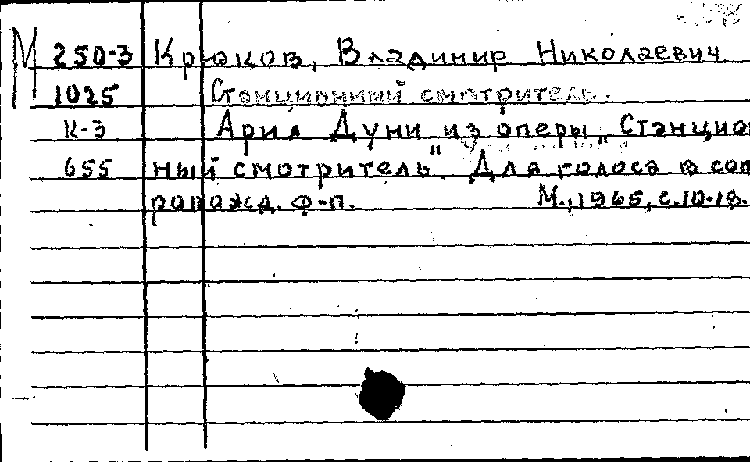 М 250-3 Крюков, Владимир Николаевич
1025 Станционный смотритель.
К-3 Ария Дуни из оперы „Станцион
655 ный смотритель" Для голоса в соп
ровожд. ф-п. М., 1965, с. 10-18.